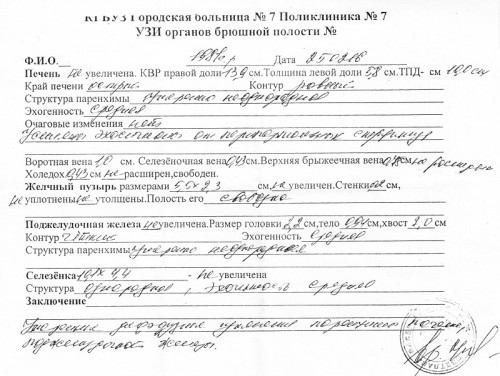 КГБУЗ Городская больница № 7 Поликлиника № 7
УЗИ органов брюшной полости №
Ф.И.О. 1986 г Дата 250216
Печень не увеличена. КВР правой доли 13,9 см. Толщина левой доли 5,8 см. ТПД- см 10,0 см
Край печени острый Контур ровный
Структура паренхимы умеренно неоднородная
Эхогенность средняя
Очаговые изменения нет
Усиление эхосигнала от перипортальных структур
Воротная вена 1,0 см. Селезёночная вена 0,43 см. Верхняя брыжеечная вена не расширен
Холедох 0,43 см не расширен, свободен.
Желчный пузырь размерами 5,5х2,3 см, не увеличен. Стенки см,
не уплотнены не утолщены. Полость его свободна
Поджелудочная железа не увеличена. Размер головки 2,2 см, тело см, хвост 2,0 см
Контур чёткий Эхогенность средняя
Структура паренхимы умеренно неоднородная
Селезёнка х 4,4 - не увеличена
Структура однородная, эхогенность средняя
Заключение
Умеренные диффузные изменения паренхимы печени,
поджелудочной железы.